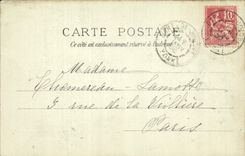 CARTE POSTALE
Ce côté est exclusivement réservé à l'adresse
10
Madame
Chamereau-Lamotte
3 rue de la Vrillière
Paris